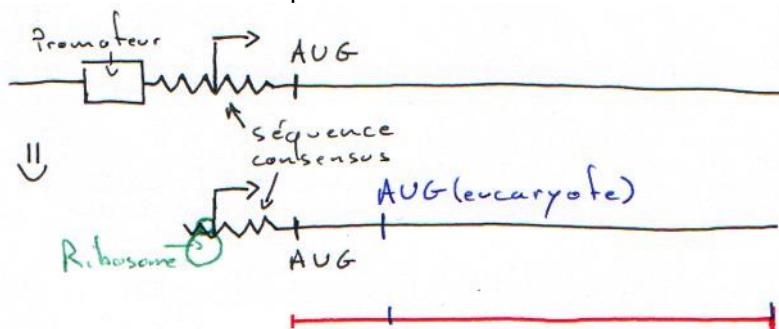 Promoteur
AUG
séquence
consensus
AUG (eucaryote)
Ribosome
AUG